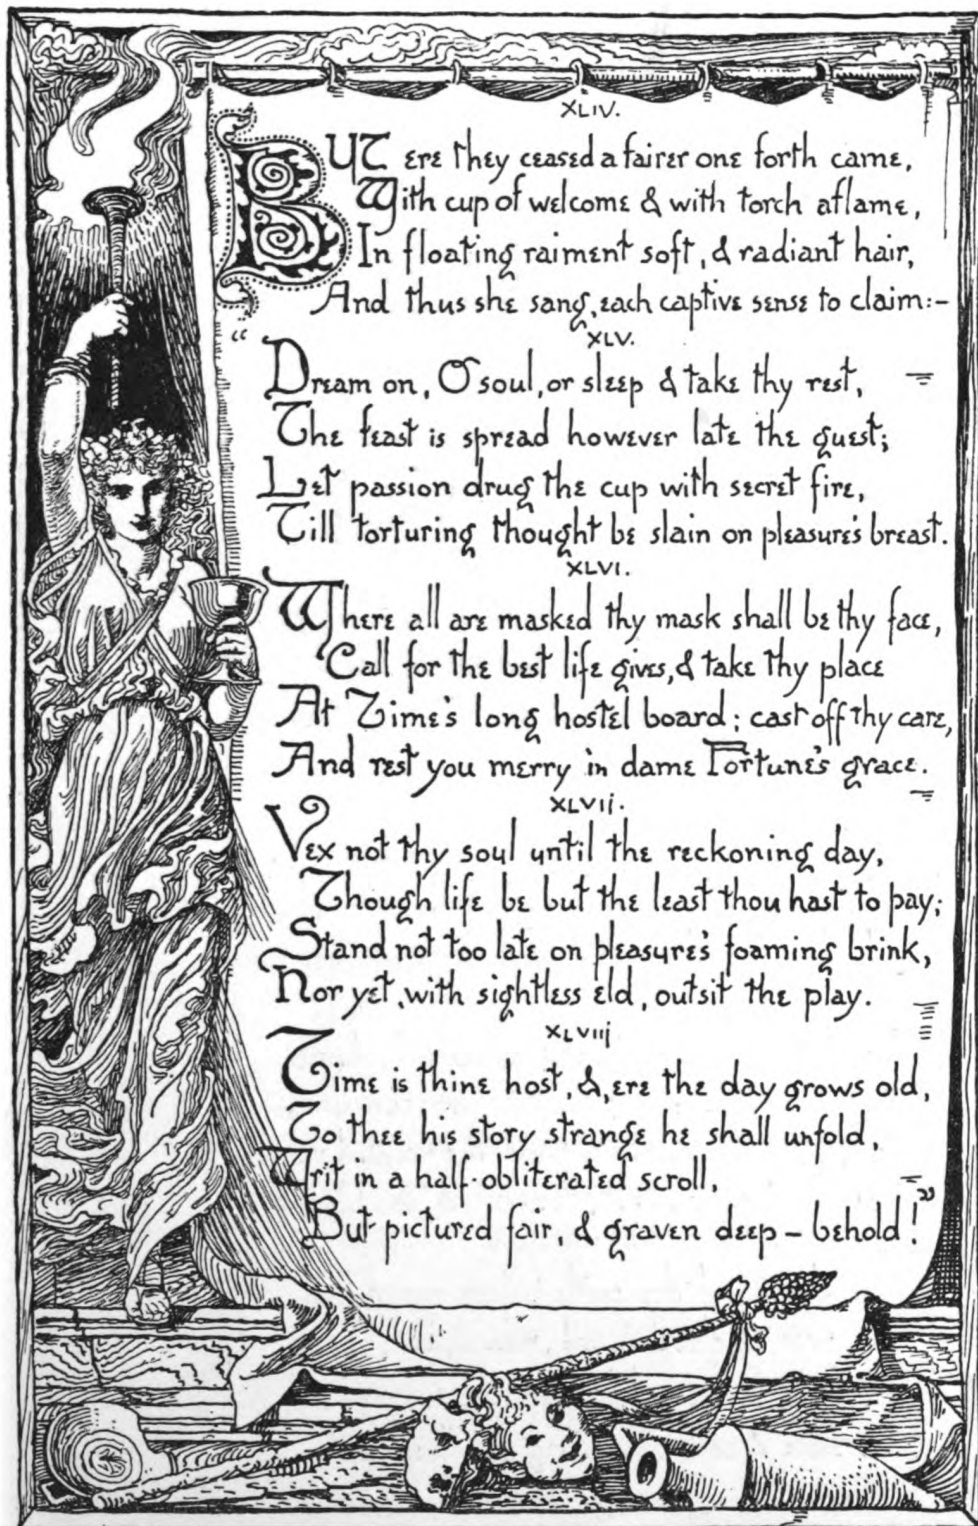 XLIV.
BUT ere they ceased a fairer one forth came,
With cup of welcome & with torch aflame,
In floating raiment soft, & radiant hair,
And thus she sang, each captive sense to claim:–
XLV.
“Dream on, O soul, or sleep & take thy rest,
The feast is spread however late the guest;
Let passion drug the cup with secret fire,
Till torturing thought be slain on pleasure's breast.
XLVI.
Where all are masked thy mask shall be thy face,
Call for the best life gives, & take thy place
At Time's long hostel board; cast off thy care,
And rest you merry in dame Fortune's grace.
XLVIj.
Vex not thy soul until the reckoning day,
Though life be but the least thou hast to pay;
Stand not too late on pleasure's foaming brink,
Nor yet, with sightless eld, outsit the play.
XLVIIj
Time is thine host, &, ere the day grows old,
To thee his story strange he shall unfold,
Writ in a half-obliterated scroll,
But pictured fair, & graven deep – behold!”